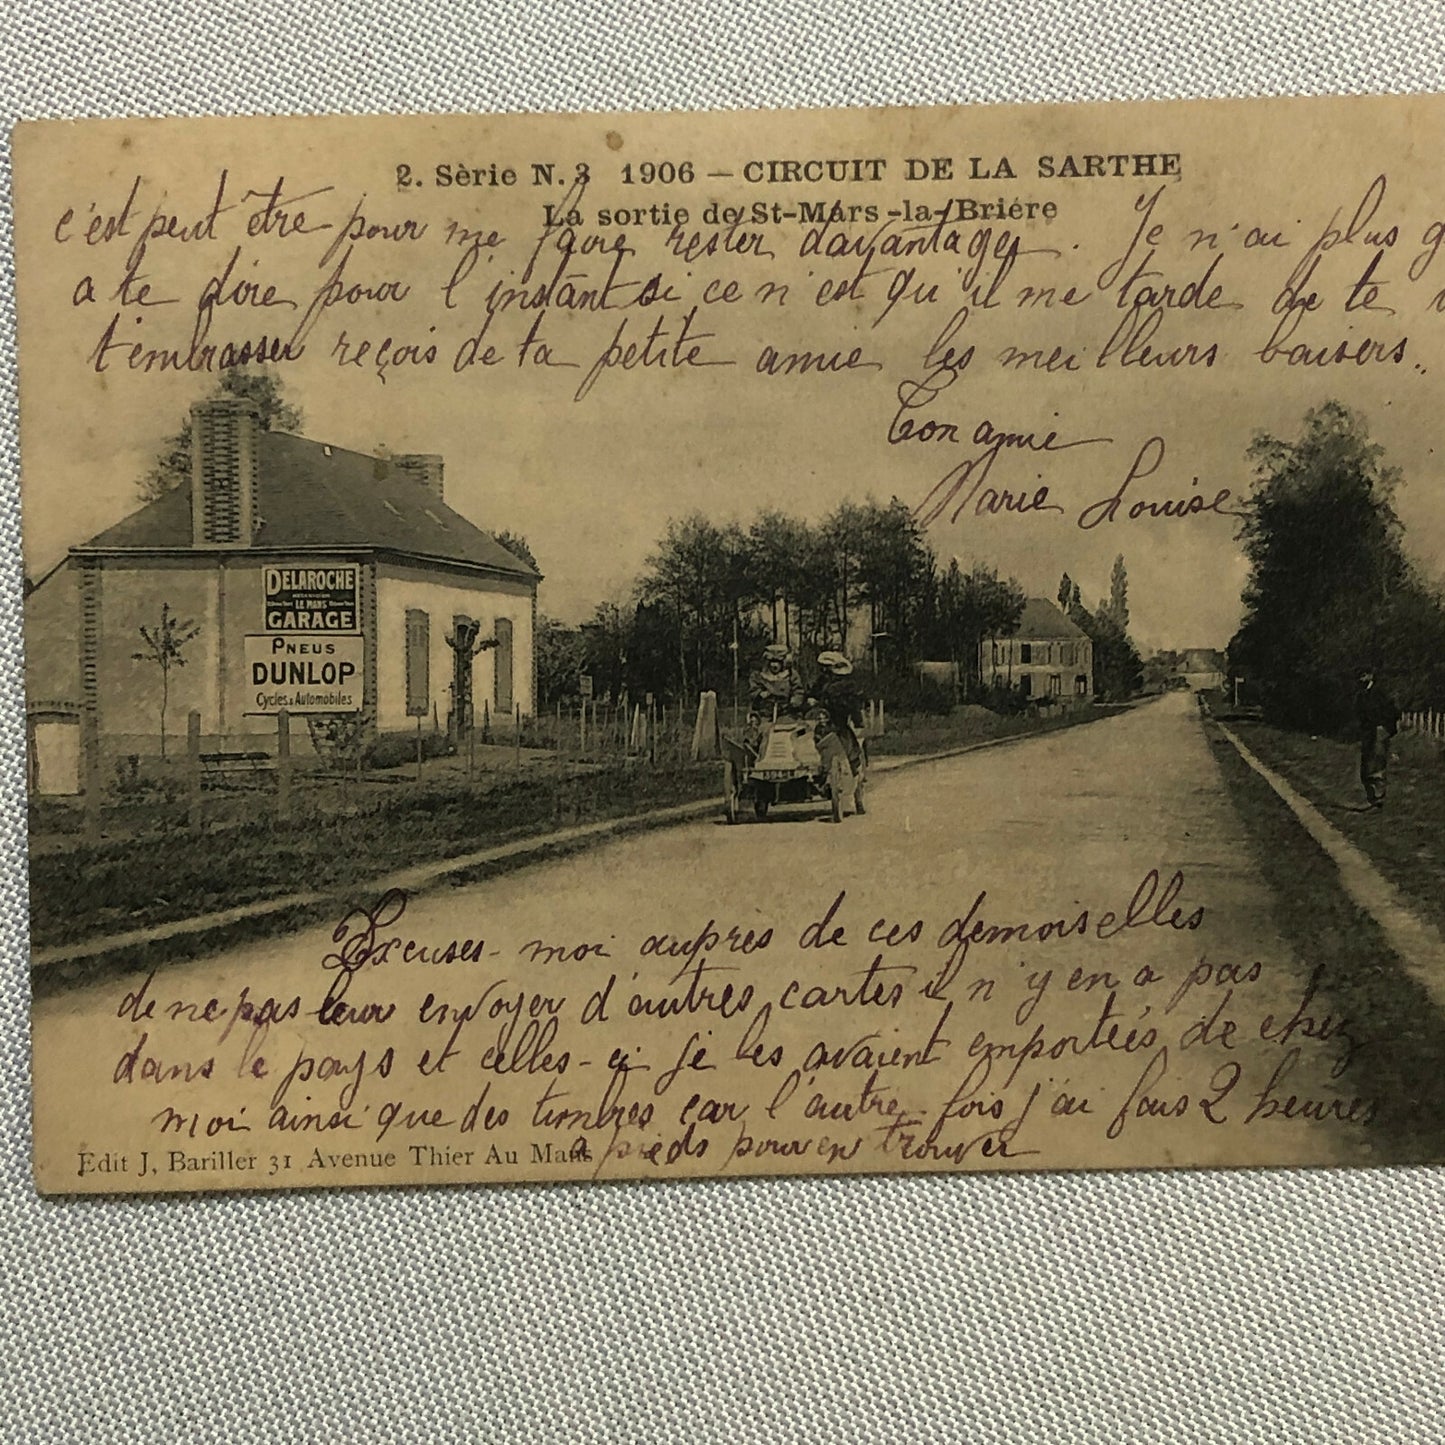 2. Sèrie N. 3 1906 — CIRCUIT DE LA SARTHE
La sortie de St-Mars-la-Briére
c'est peut être pour me faire rester davantage. Je n'ai plus g
a te dire pour l'instant si ce n'est qu'il me tarde de te
t'embrasser reçois de ta petite amie les meilleurs baisers..
Ton amie
Marie Louise
DELAROCHE
LE MANS
GARAGE
PNEUS
DUNLOP
Cycles & Automobiles
Excuses-moi auprès de ces demoiselles
de ne pas leur envoyer d'autres cartes il n'y en a pas
dans le pays et celles-ci je les avaient emportées de chez
moi ainsi que des timbres car l'autre fois j'ai fais 2 heures
a pieds pour en trouver
Edit J, Bariller 31 Avenue Thier Au Mans